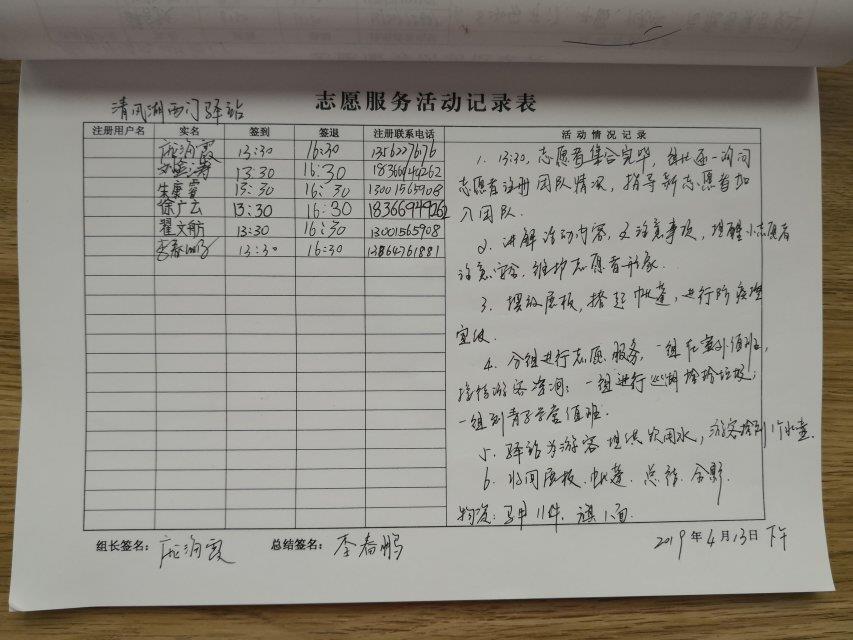 志愿服务活动记录表
清风湖西门驿站
注册用户名 实名 签到 签退 注册联系电话 活动情况记录
霞 13:30 16:30 1356227676
涛 13:30 16:30 18366949262
朱康睿 13:30 16:30 13001565908
徐广云 13:30 16:30 18366949262
翟文舫 13:30 16:30 13001565908
李春鹏 13:30 16:30 13864761881
1. 13:30,志愿者集合完毕,组长逐一询问
志愿者注册团队情况,指导新志愿者加
入团队.
2. 讲解活动内容,及注意事项,提醒小志愿者
注意安全,维护志愿者形象.
3. 摆放展板,搭起帐篷,进行防疫
宣传.
4. 分组进行志愿服务,一组在室外值班,
接待游客咨询;一组进行巡湖捡拾垃圾;
一组到亲子学堂值班.
5. 驿站为游客提供饮用水,游客捡到1个水壶.
6. 收回展板、帐篷、总结、合影.
物资:马甲11件,旗1面.
组长签名: 霞 总结签名: 李春鹏 2019年4月13日 下午